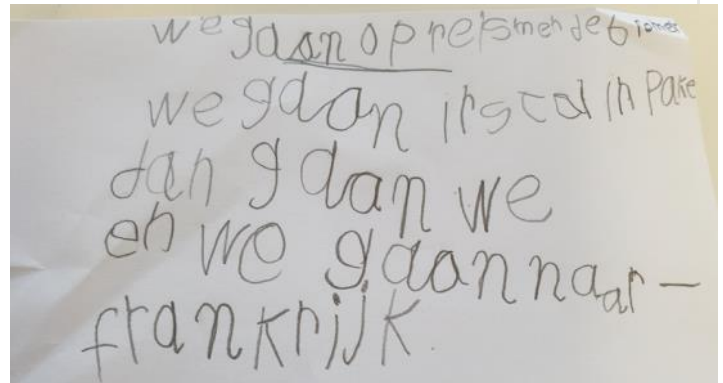 we gaan op reis met de
we gaan irst al in pake
dan gaan we
en we gaan naar –
frankrijk.